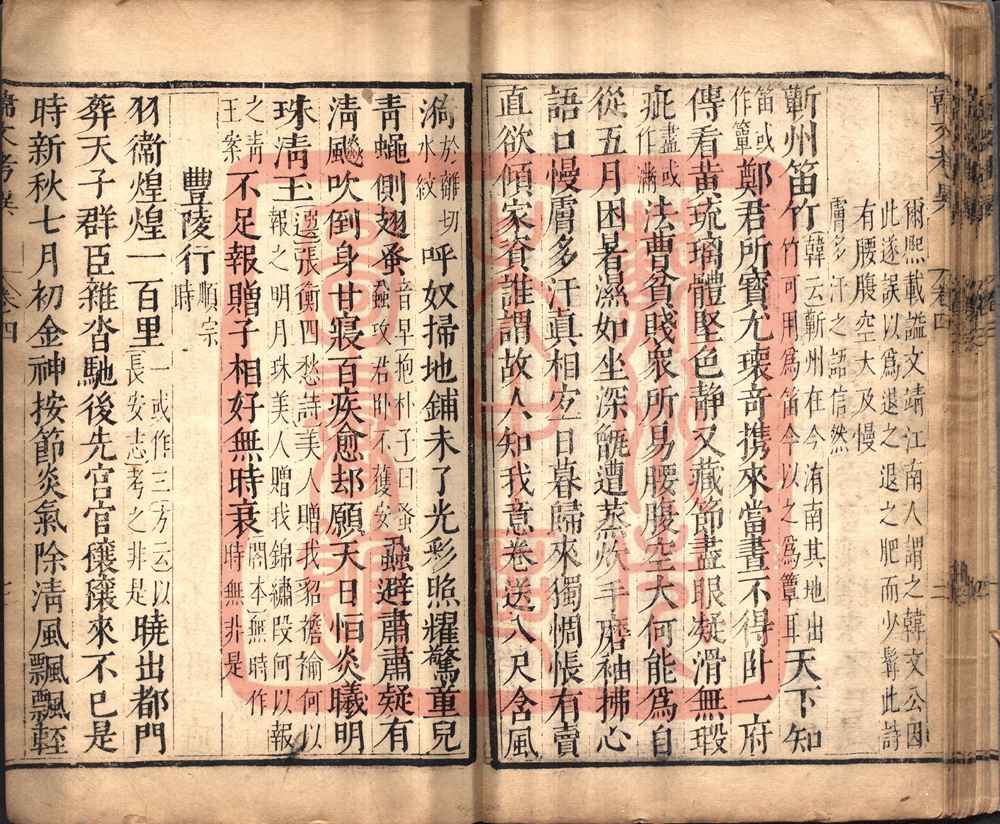 爾熙載謚文靖江南人謂之韓文公因
此遂誤以爲退之退之肥而少髯此詩
有腰腹空大及慢
膚多汗之語信然
蘄州笛竹韓云蘄州在今淯南其地出竹可用爲笛今以之爲簟耳天下知
笛或作簟鄭君所寶尤瓌奇携來當晝不得卧一府
傳看黄琉璃體堅色静又藏節盡眼凝滑無瑕
疵盡或作滿法曹貧賤衆所易腰腹空大何能爲自
從五月困暑濕如坐深甑遭蒸炊手磨袖拂心
語口慢膚多汗真相宜日暮歸來獨惆悵有賣
直欲傾家資誰謂故人知我意卷送八尺含風
漪於離切水紋呼奴掃地鋪未了光彩照耀驚童兒
青蠅側翅蚤音早抱朴子曰蚤蝨攻君卧不獲安蝨避肅肅疑有
清飈吹倒身甘寢百疾愈却願天日怕炎曦明
珠清玉邊張衡四愁詩美人贈我貂襜褕何以報之明月珠美人贈我錦繡段何以報
之青王案不足報贈子相好無時衰閣本無時作時無非是
豐陵行順宗時
羽衛煌煌一百里一或作三方云以長安志考之非是曉出都門
葬天子群臣雜沓馳後先宫官儴儴來不已是
時新秋七月初金神按節炎氣除清風飄飄輕
韓文考異
卷四